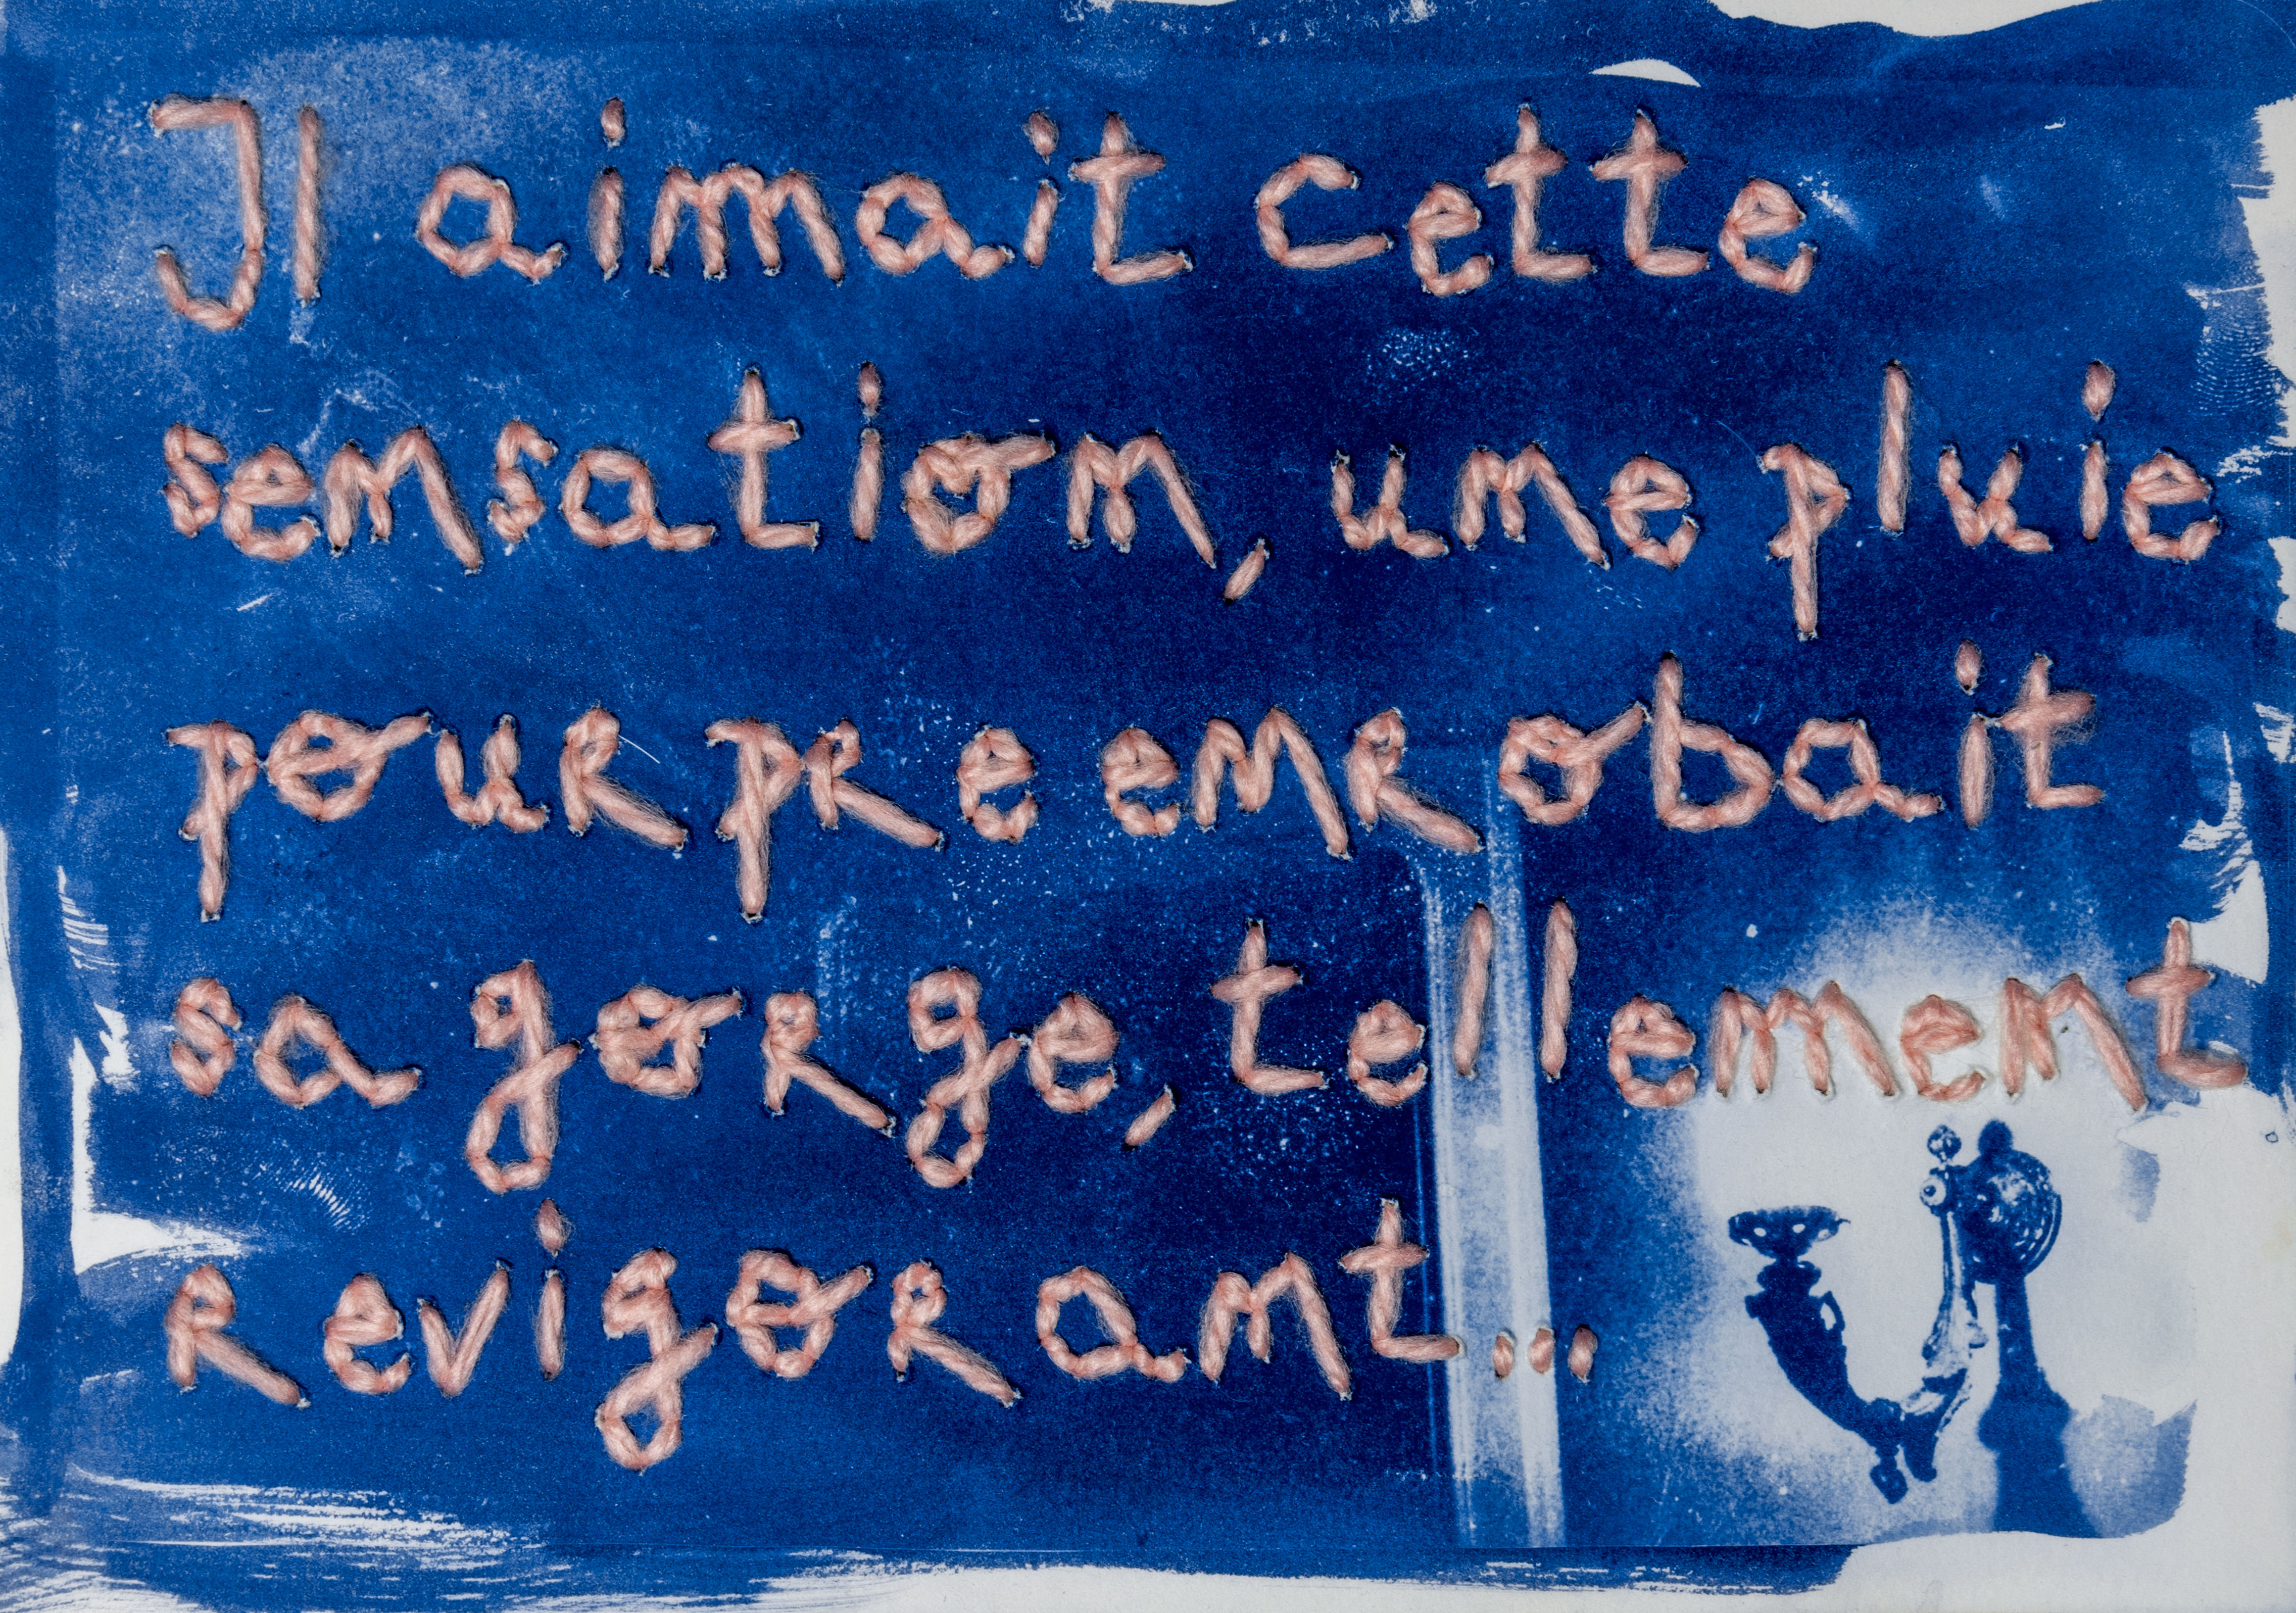 Il aimait cette
sensation, une pluie
pourpre enrobait
sa gorge, tellement
revigorant...